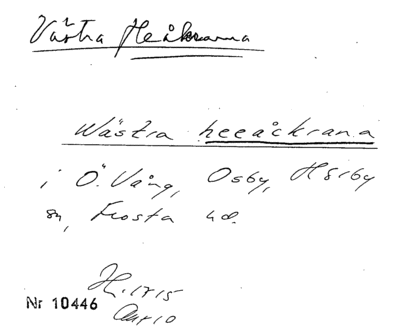 Västra Heåkrarna
Wästra heeåckrana
i Ö. Vång, Osby, Hörby
sn, Frosta hd.
H. 1715
Nr 10446